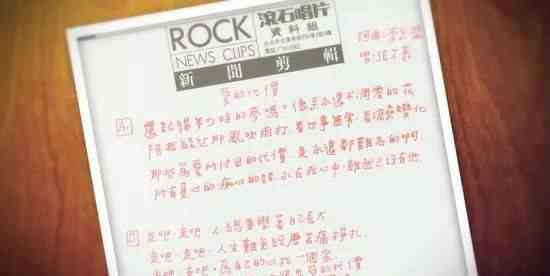 ROCK
NEWS CLIPS
滾石唱片
資料組
新聞剪輯
愛的代價
唱:張艾嘉
A. 還記得年少時的夢嗎?像朵永遠不凋零的花
陪我經過那風吹雨打 看世事無常,看滄桑變化
那些為愛所付出的代價 是永遠都難忘的啊
所有真心的·痴心的話 永在我心中·雖然已沒有他
走吧·走吧·人總要學著自己長大
走吧·走吧·人生難免經歷苦痛掙扎
走吧·走吧·為自己的心找一個家